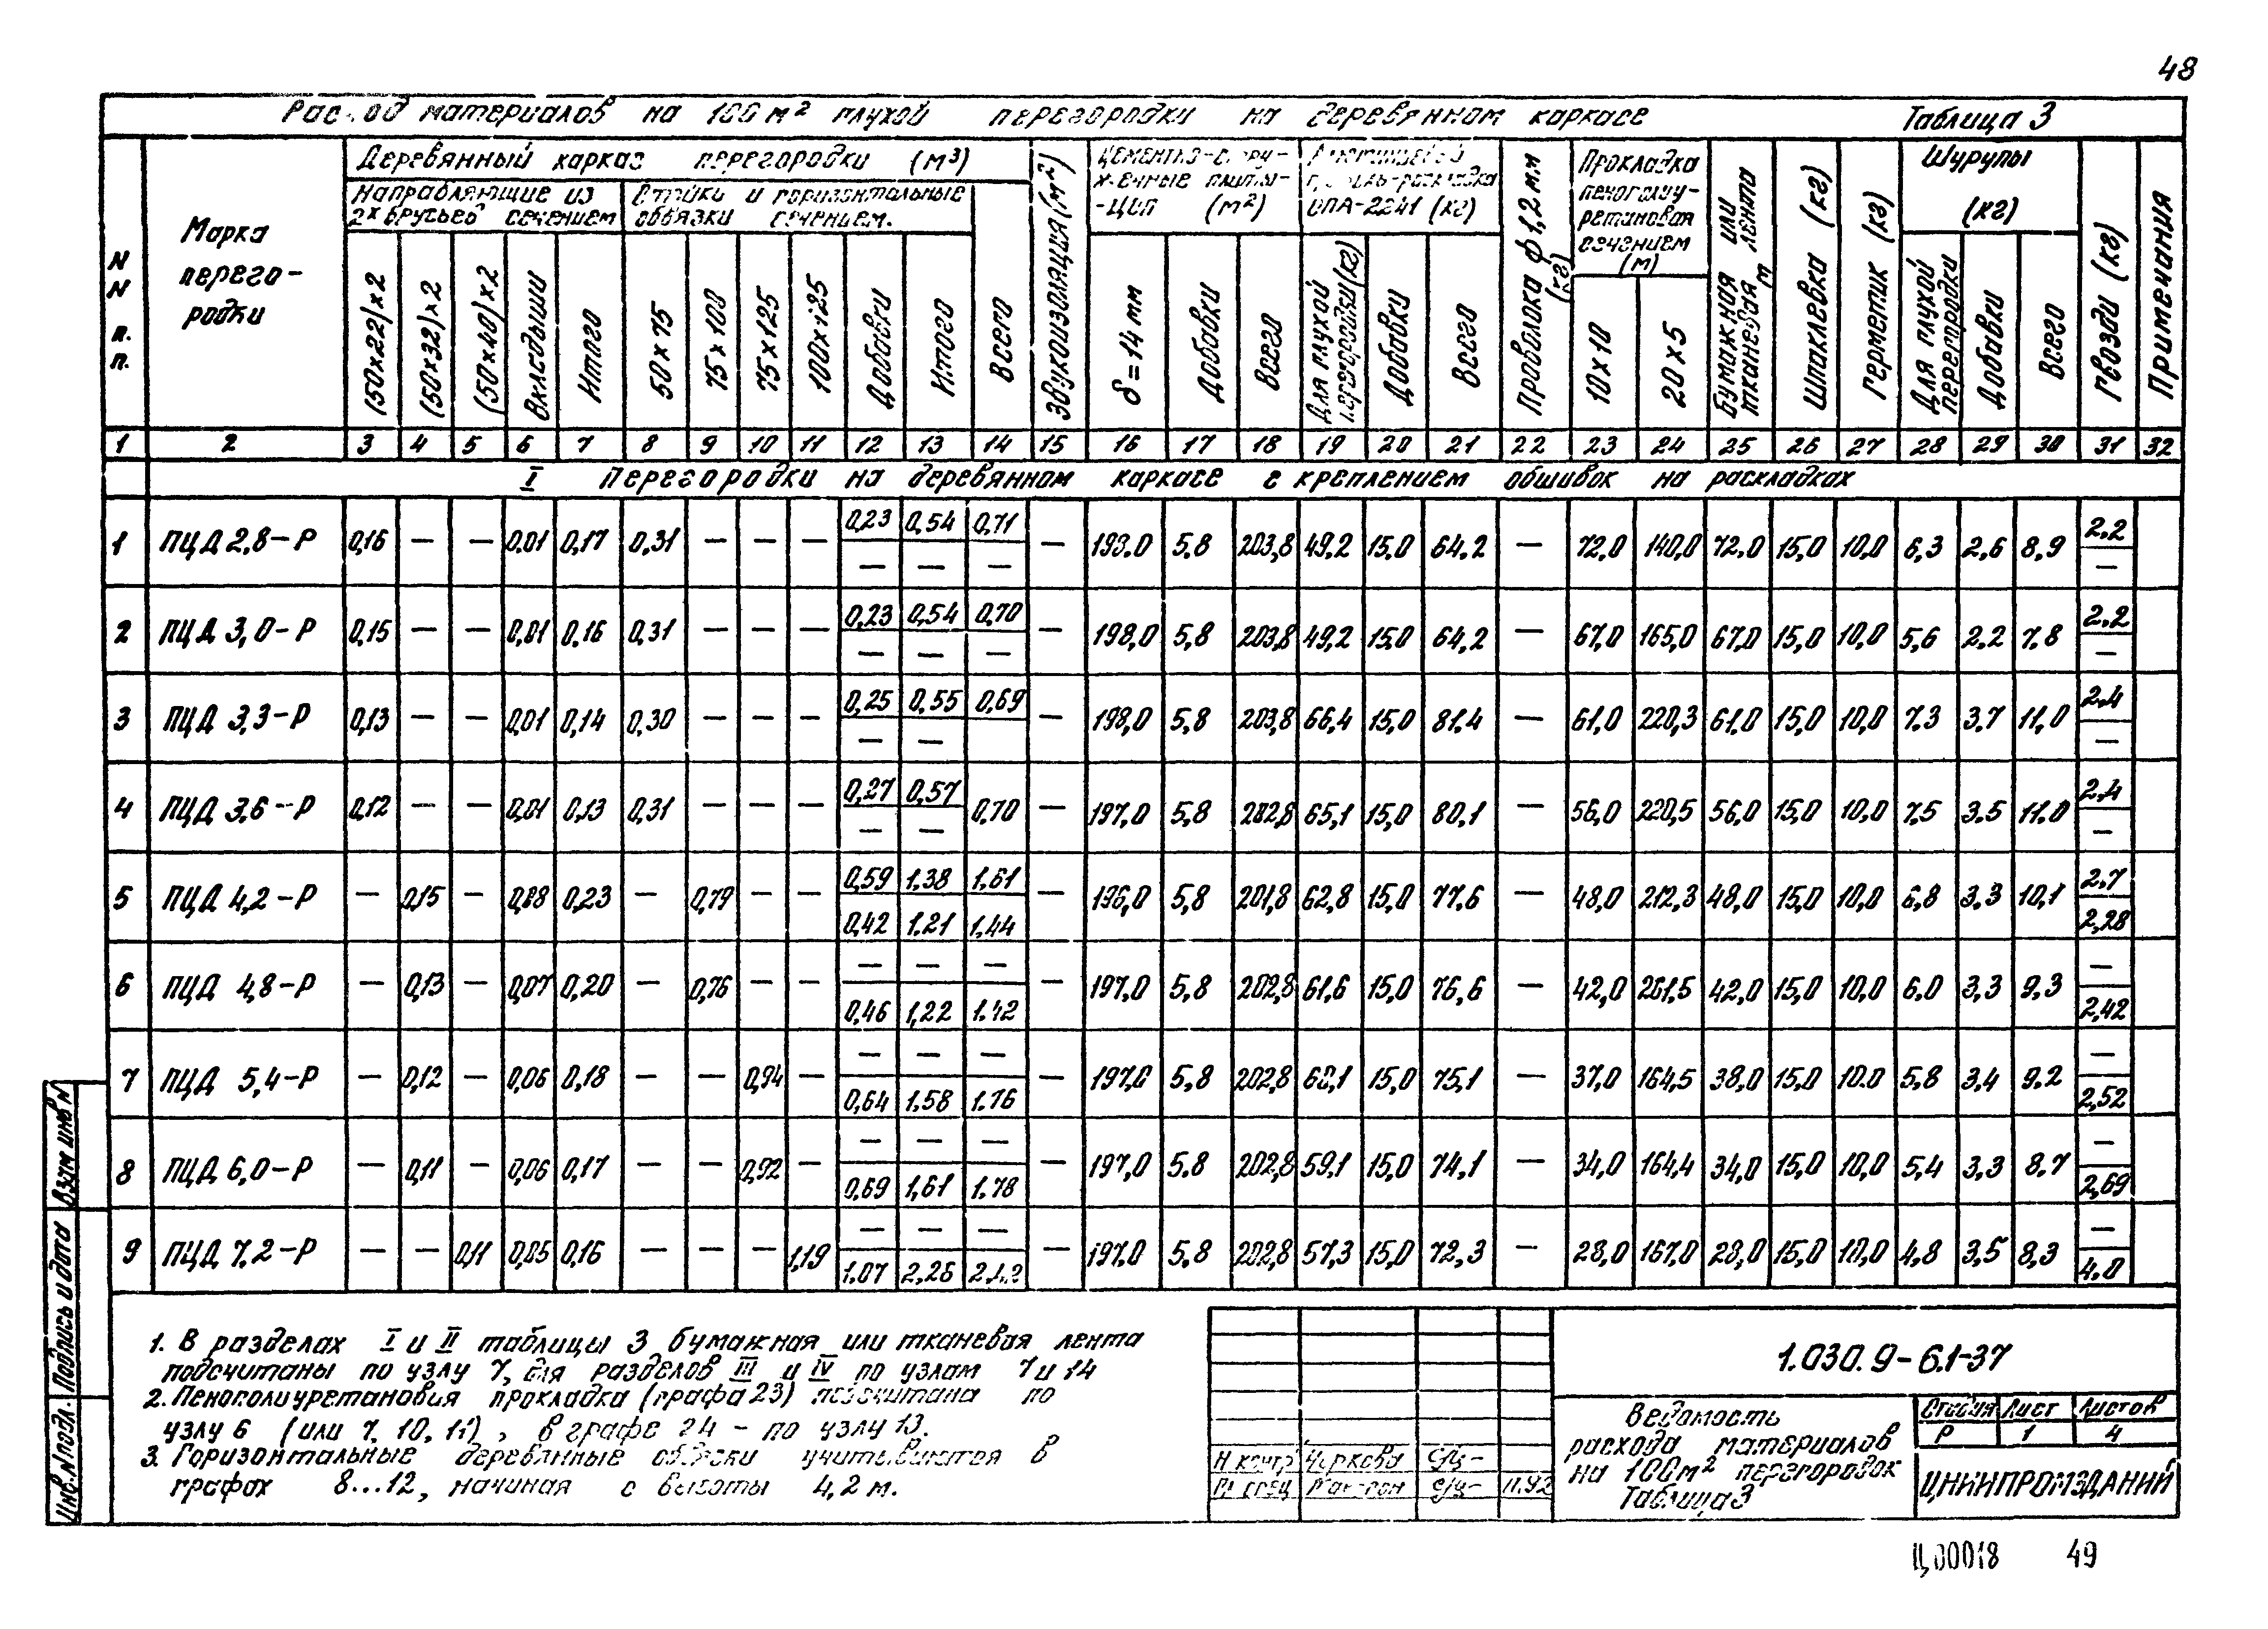 48
Расход материалов на 100 м² глухой перегородки на деревянном каркасе Таблица 3
NN п.п.
Марка перего-родки
Деревянный каркас перегородки (м³)
Направляющие из 2х брусьев сечением
(50×22)×2
(50×32)×2
(50×40)×2
Вкладыши
Итого
Стойки и горизонтальные обвязки сечением.
50×75
75×100
75×125
100×125
Добавки
Итого
Всего
Звукоизоляция (м²)
Цементно-струж-ечные плиты-ЦСП (м²)
δ=14 мм
Добавки
Всего
профиль-раскладка СПА-2241 (кг)
Для глухой перегородки (кг)
Добавки
Всего
Проволока ф1,2 мм (кг)
Прокладка пенополиу-ретановая сечением (м)
10×10
20×5
Бумажная или тканевая лента м
Шпаклевка (кг)
Герметик (кг)
Шурупы (кг)
Для глухой перегородки
Добавки
Всего
Гвозди (кг)
Примечания
1 2 3 4 5 6 7 8 9 10 11 12 13 14 15 16 17 18 19 20 21 22 23 24 25 26 27 28 29 30 31 32
I Перегородки на деревянном каркасе с креплением обшивок на раскладках
1 ПЦД 2,8-Р 0,16 — — 0,01 0,17 0,31 — — — 0,23 0,54 0,71 — 198,0 5,8 203,8 49,2 15,0 64,2 — 72,0 140,0 72,0 15,0 10,0 6,3 2,6 8,9 2,2
— — — —
2 ПЦД 3,0-Р 0,15 — — 0,01 0,16 0,31 — — — 0,23 0,54 0,70 — 198,0 5,8 203,8 49,2 15,0 64,2 — 67,0 165,0 67,0 15,0 10,0 5,6 2,2 7,8 2,2
— — — —
3 ПЦД 3,3-Р 0,13 — — 0,01 0,14 0,30 — — — 0,25 0,55 0,69 — 198,0 5,8 203,8 66,4 15,0 81.4 — 61,0 220,3 61,0 15,0 10,0 7.3 3.7 11,0 2,4
— — —
4 ПЦД 3,6-Р 0,12 — — 0,01 0,13 0,31 — — — 0,27 0,57 0,70 — 197,0 5,8 202,8 65,1 15,0 80,1 — 56,0 220,5 56,0 15,0 10,0 7,5 3.5 11.0 2,4
— — —
5 ПЦД 4,2-Р — 0,15 — 0,08 0,23 — 0,79 — — 0,59 1.38 1.61 — 196,0 5,8 201,8 62,8 15,0 77.6 — 48,0 212,3 48,0 15,0 10,0 6,8 3,3 10,1 2,7
0,42 1.21 1,44 2,28
6 ПЦД 4,8-Р — 0,13 — 0,07 0,20 — 0,76 — — — — — — 197,0 5,8 202,8 61,6 15,0 76,6 — 42,0 261,5 42,0 15,0 10,0 6,0 3,3 9,3 —
0,46 1,22 1.42 2,42
7 ПЦД 5,4-Р — 0,12 — 0,06 0,18 — — 0,94 — — — — — 197,0 5,8 202,8 60,1 15,0 75,1 — 37,0 164,5 38,0 15,0 10,0 5,8 3,4 9,2 —
0,64 1.58 1.76 2,52
8 ПЦД 6,0-Р — 0,11 — 0,06 0,17 — — 0,92 — — — — — 197,0 5,8 202,8 59,1 15,0 74,1 — 34,0 164,4 34,0 15,0 10,0 5,4 3,3 8,7 —
0,69 1,61 1.78 2,69
9 ПЦД 7.2-Р — — 0,11 0,05 0,16 — — — 1,19 — — — — 197.0 5.8 202,8 57,3 15,0 72,3 — 28,0 167,0 28,0 15,0 10,0 4,8 3,5 8,3 —
1.07 2,26 4,0
1. В разделах I и II таблицы 3 бумажная или тканевая лента
подсчитаны по узлу 7, для разделов III и IV по узлам 7 и 14
2. Пенополиуретановая прокладка (графа 23) подсчитана по
узлу 6 (или 7, 10, 11), в графе 24 – по узлу 13.
3. Горизонтальные деревянные обвязки учитываются в
графах 8...12, начиная с высоты 4,2 м.
Н.контр Чоркова
Гл.спец 11.92
1.030.9-6.1-37
Ведомость
расхода материалов
на 100м² перегородок
Таблица 3
Стадия Лист Листов
Р 1 4
ЦНИИПРОМЗДАНИЙ
Инв.N подл. Подпись и дата Взам инв N
Ц00018 49